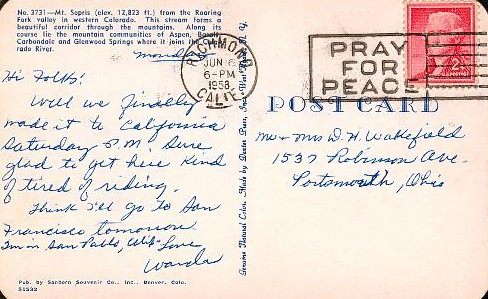 No. 3731—Mt. Sopris (elev. 12,823 ft.) from the Roaring
Fork valley in western Colorado. This stream forms a
beautiful corridor through the mountains. Along its
course lie the mountain communities of Aspen, Basalt,
Carbondale and Glenwood Springs where it joins the Colo-
rado River.
Monday
Hi Folks!
Well we finelley
made it to California
Saturday P.M. Sure
glad to get here kind
of tired of riding.
Think I'll go to San
Francisco tomorrow
I'm in San Pablo, Love
Wanda
Pub. by Sanborn Souvenir Co., Inc., Denver, Colo.
51532
Genuine Natural Color, Made by Dexter Press, Inc. West N. Y.
RICHMOND
JUN 16
6-PM
1958
CALIF.
PRAY
FOR
PEACE
2¢
U.S. POSTAGE
POST CARD
Mr + Mrs D. H. Wakefield
1537 Robinson Ave.
Portsmouth, Ohio